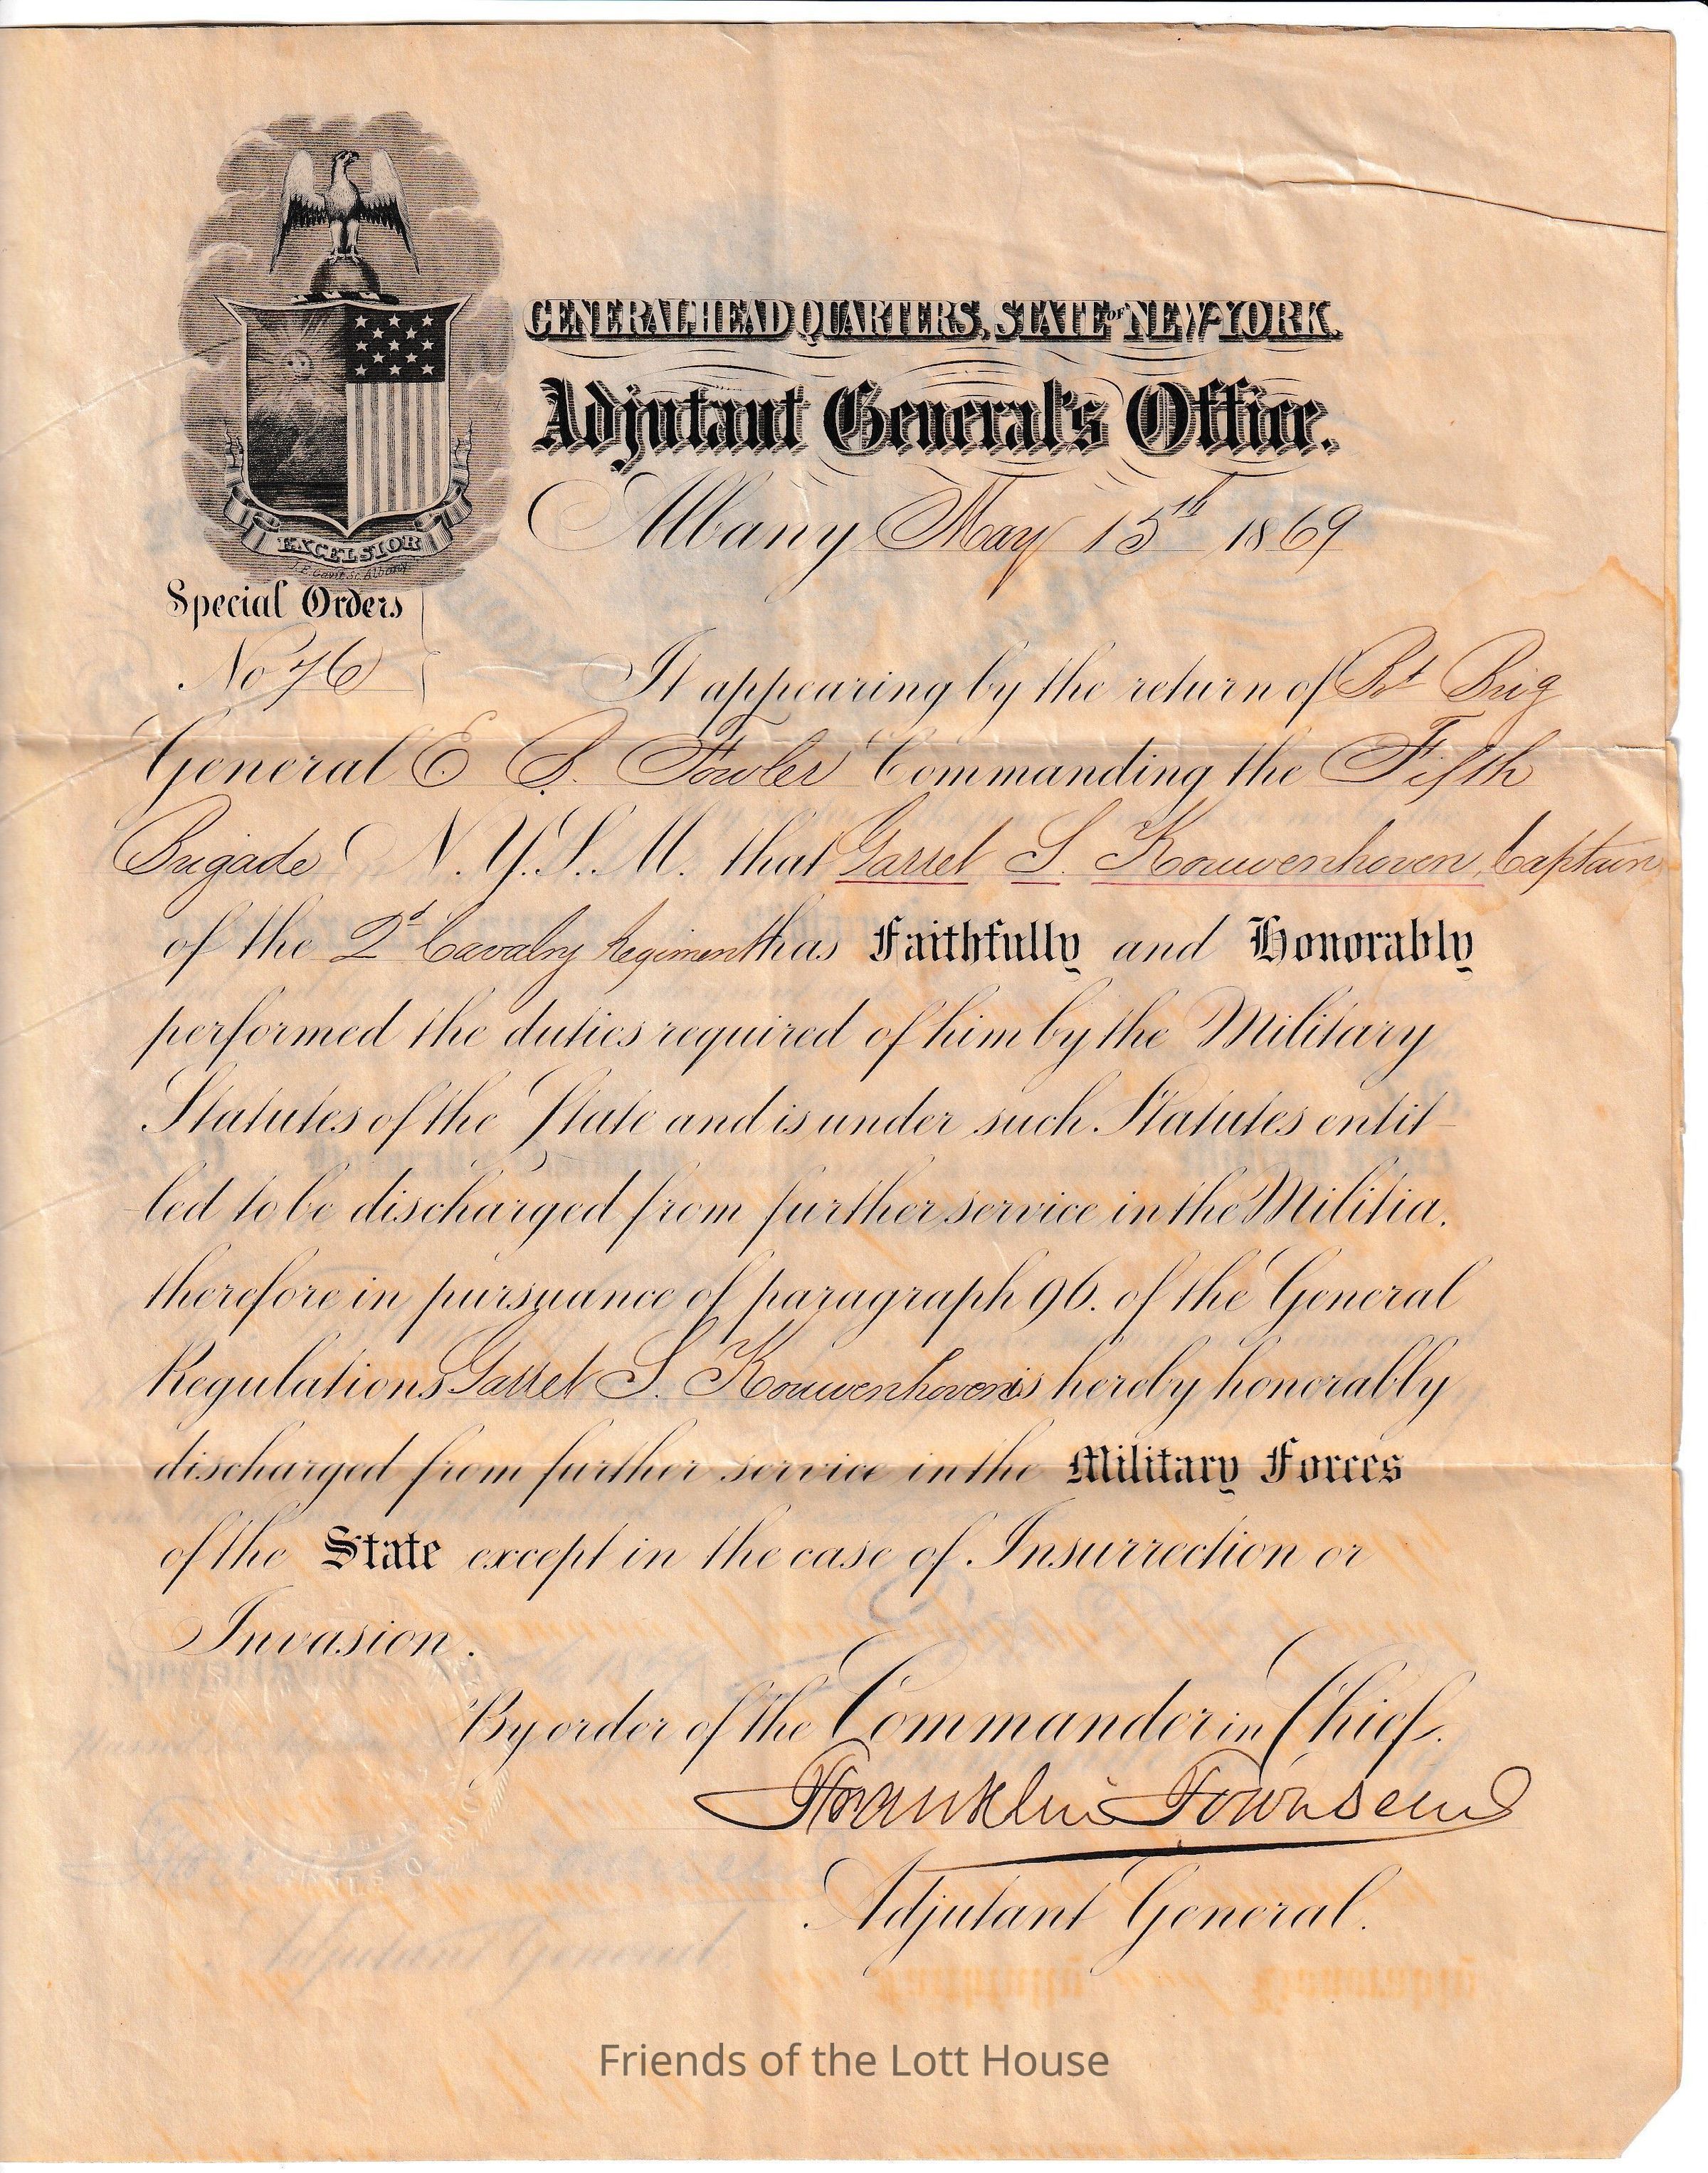 GENERAL HEAD QUARTERS, STATE OF NEW-YORK.
Adjutant General's Office.
Albany May 15th 1869
EXCELSIOR
Special Orders
No 76
It appearing by the return of Bt Brig
General E S. Fowler Commanding the Fifth
Brigade N.Y.S.M. that Garret S. Kouwenhoven, Captain
of the 2d Cavalry Regiment has Faithfully and Honorably
performed the duties required of him by the Military
Statutes of the State and is under such Statutes entit-
led to be discharged from further service in the Militia.
therefore in pursuance of paragraph 96. of the General
Regulations Garret S. Kouwenhoven is hereby honorably
discharged from further service in the Military Forces
of the State except in the case of Insurrection or
Invasion.
By order of the Commander in Chief.
Franklin Townsend
Adjutant General.
Friends of the Lott House